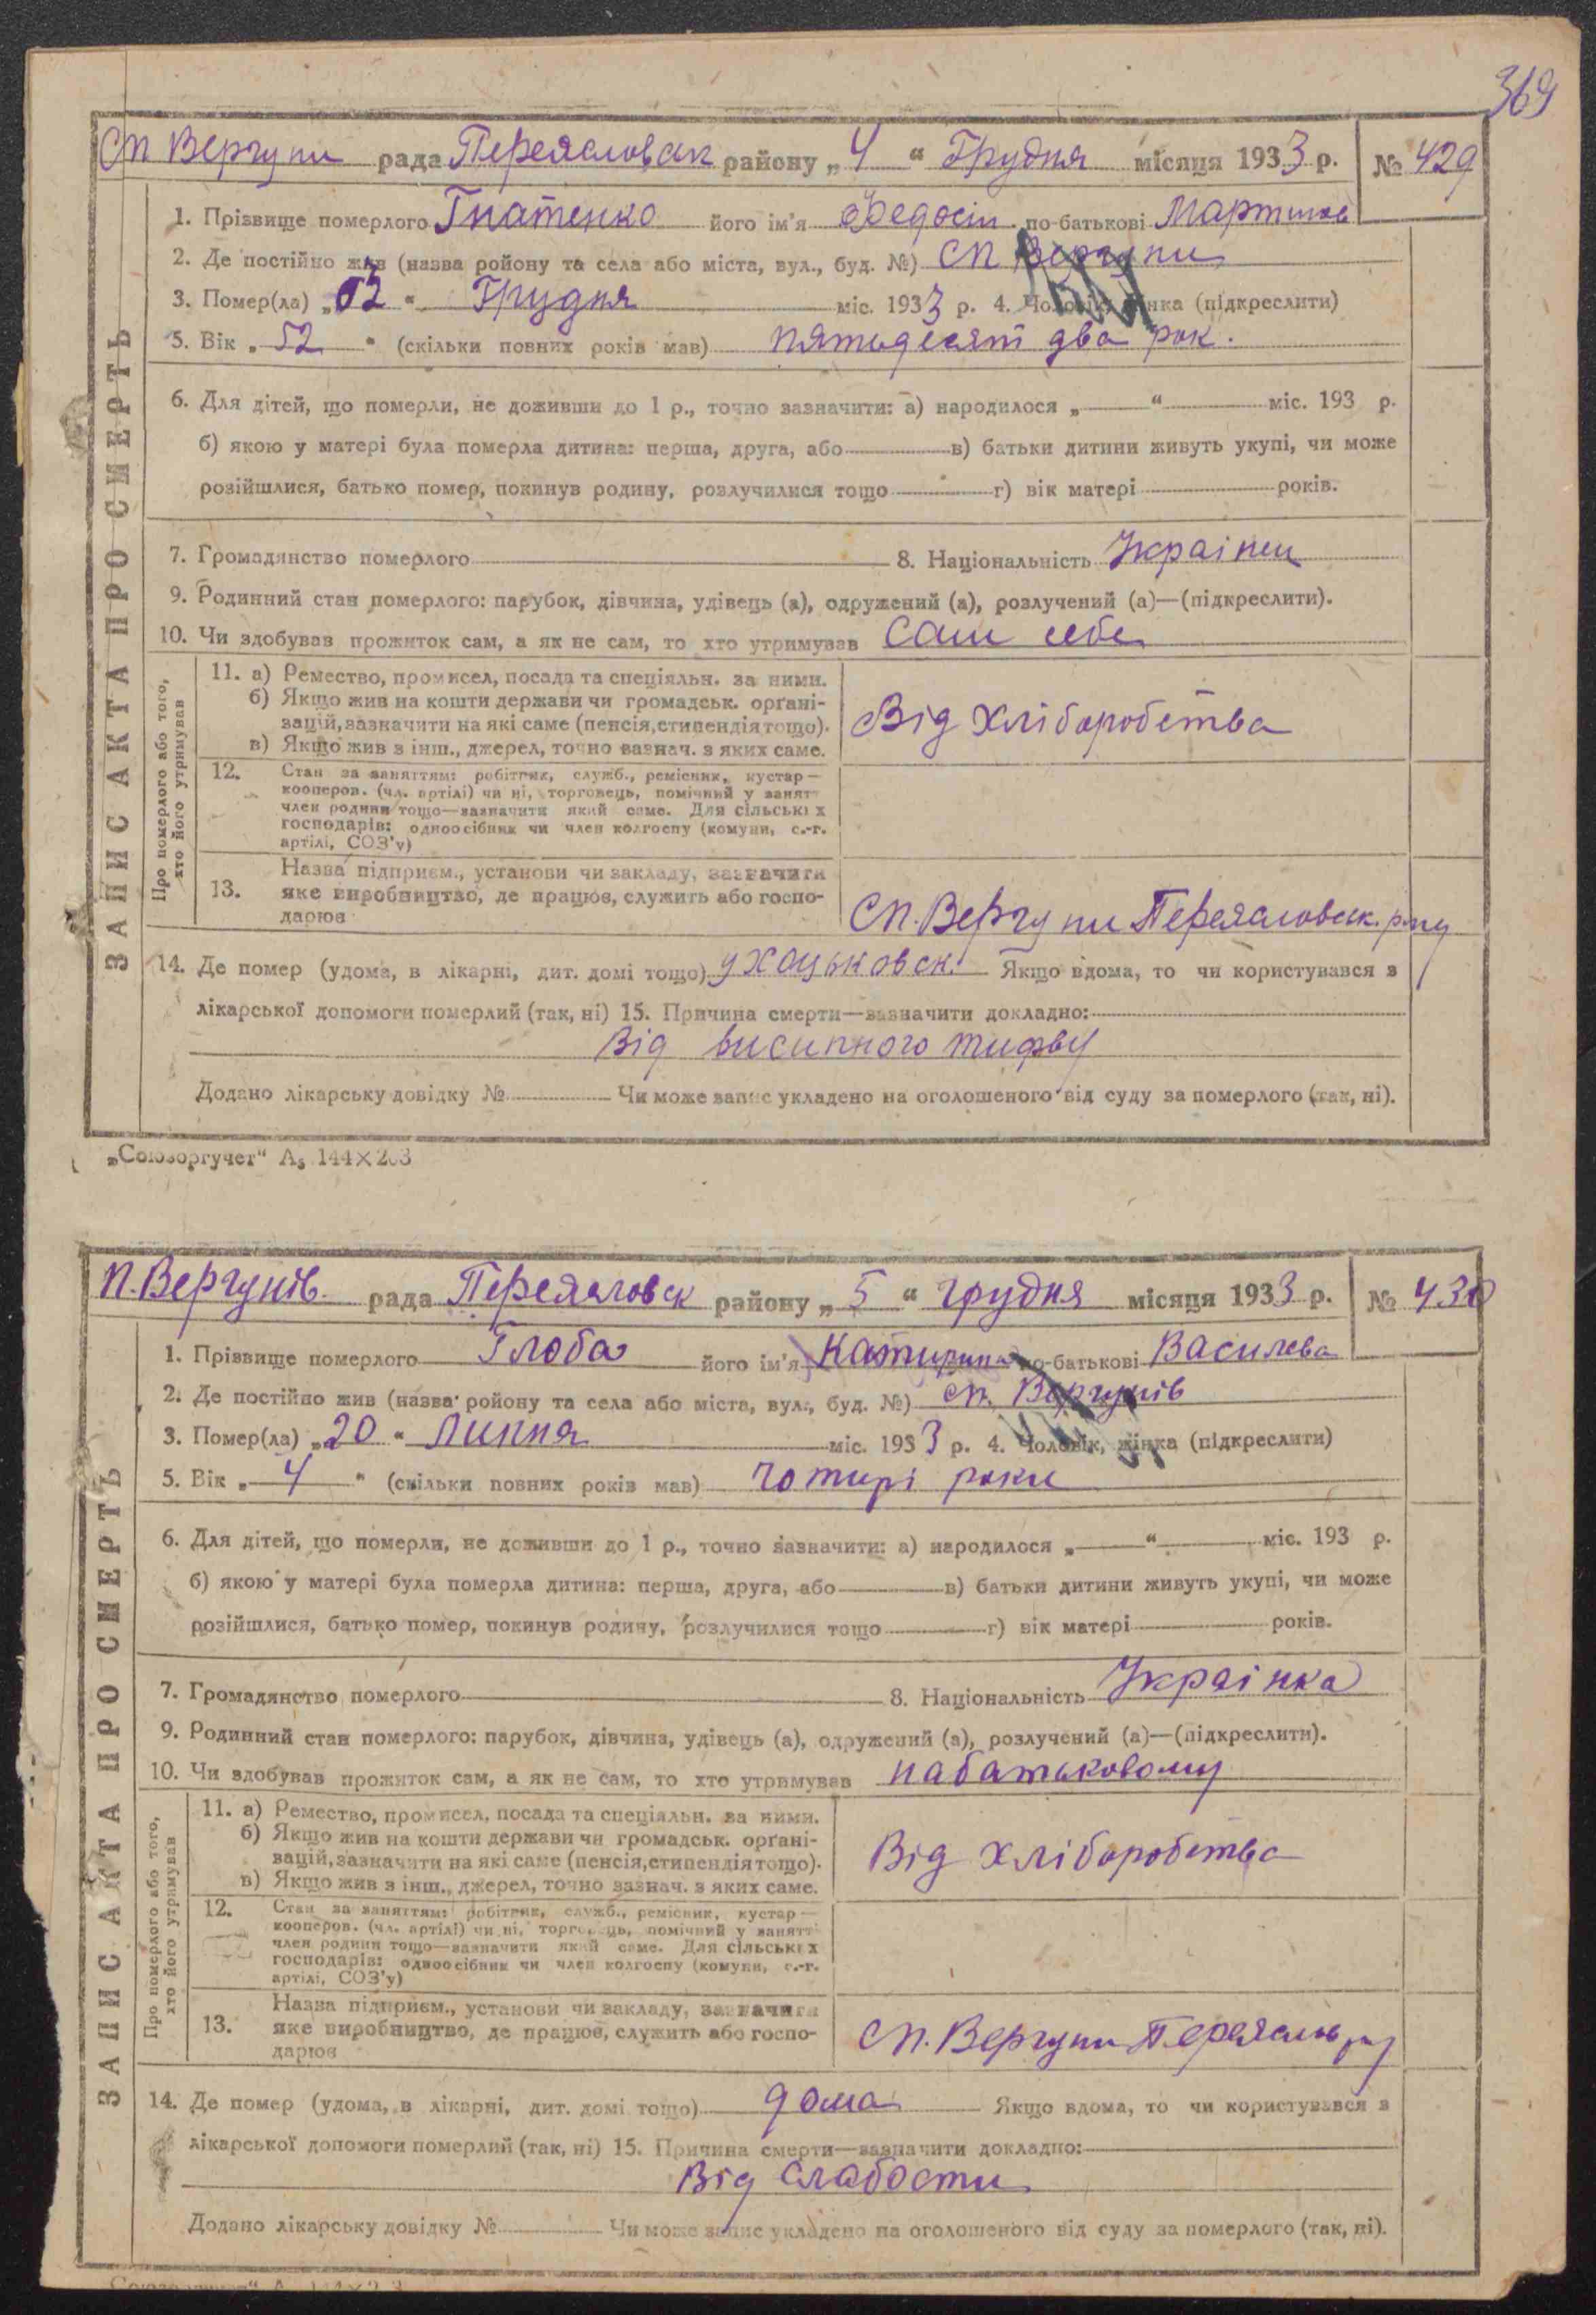 369
Сп Вергуни рада Переясловск району „4“ Грудня місяця 1933 р. № 429
ЗАПИС АКТА ПРО СМЕРТЬ
1. Прізвище померлого Гнатенко його ім'я Федосій по-батькові Мартинов
2. Де постійно жив (назва ройону та села або міста, вул., буд. №) СП Вергуни
3. Помер(ла) „ “ Грудня міс. 1933 р. 4. Чоловік, жінка (підкреслити)
5. Вік „52“ (скільки повних років мав) пятьдесят два рок.
6. Для дітей, що померли, не доживши до 1 р., точно зазначити: а) народилося „ “ міс. 193 р.
б) якою у матері була померла дитина: перша, друга, або в) батьки дитини живуть укупі, чи може
розійшлися, батько помер, покинув родину, розлучилися тощо г) вік матері років.
7. Громадянство померлого 8. Національність Українец
9. Родинний стан померлого: парубок, дівчина, удівець (а), одружений (а), розлучений (а)—(підкреслити).
10. Чи здобував прожиток сам, а як не сам, то хто утримував Сам себе
Про померлого або того, хто його утримував
11. а) Ремество, промисел, посада та спеціяльн. за ними.
б) Якщо жив на кошти держави чи громадськ. орґані-
зацій, зазначити на які саме (пенсія, стипендія тощо).
в) Якщо жив з інш., джерел, точно зазнач. з яких саме.
Від хліборобства
12. Стан за заняттям: робітник, служб., ремісник, кустар—
кооперов. (чл. артілі) чи ні, торговець, помічний у занятт
член родини тощо—зазначити який саме. Для сільських
господарів: одноосібник чи член колгоспу (комуни, с.-г.
артілі, СОЗ'у)
13. Назва підприєм., установи чи закладу, зазначити
яке виробництво, де працює, служить або госпо-
дарює
СП. Вергуни Переясловск. р-ну
14. Де помер (удома, в лікарні, дит. домі тощо) у Хоцьковск. Якщо вдома, то чи користувався з
лікарської допомоги померлий (так, ні) 15. Причина смерти—зазначити докладно:
Від висипного тифву
Додано лікарську довідку № Чи може запис укладено на оголошеного від суду за померлого (так, ні).
„Союзоргучет“ А5 144×203
п. Вергунів. рада Переясловск району „5“ грудня місяця 1933 р. № 430
ЗАПИС АКТА ПРО СМЕРТЬ
1. Прізвище померлого Глоба його ім'я Катирина по-батькові Василева
2. Де постійно жив (назва ройону та села або міста, вул., буд. №) сп. Вергунів
3. Помер(ла) „20“ Липня міс. 1933 р. 4. Чоловік, жінка (підкреслити)
5. Вік „4“ (скільки повних років мав) чотирі роки
6. Для дітей, що померли, не доживши до 1 р., точно зазначити: а) народилося „ “ міс. 193 р.
б) якою у матері була померла дитина: перша, друга, або в) батьки дитини живуть укупі, чи може
розійшлися, батько помер, покинув родину, розлучилися тощо г) вік матері років.
7. Громадянство померлого 8. Національність Українка
9. Родинний стан померлого: парубок, дівчина, удівець (а), одружений (а), розлучений (а)—(підкреслити).
10. Чи здобував прожиток сам, а як не сам, то хто утримував на батьковому
Про померлого або того, хто його утримував
11. а) Ремество, промисел, посада та спеціяльн. за ними.
б) Якщо жив на кошти держави чи громадськ. орґані-
зацій, зазначити на які саме (пенсія, стипендія тощо).
в) Якщо жив з інш., джерел, точно зазнач. з яких саме.
Від хліборобства
12. Стан за заняттям: робітник, служб., ремісник, кустар—
кооперов. (чл. артілі) чи ні, торговець, помічний у занятт
член родини тощо—зазначити який саме. Для сільських
господарів: одноосібник чи член колгоспу (комуни, с.-г.
артілі, СОЗ'у)
13. Назва підприєм., установи чи закладу, зазначити
яке виробництво, де працює, служить або госпо-
дарює
СП. Вергуни Переяслов р-ну
14. Де помер (удома, в лікарні, дит. домі тощо) дома Якщо вдома, то чи користувався з
лікарської допомоги померлий (так, ні) 15. Причина смерти—зазначити докладно:
Від Слабости
Додано лікарську довідку № Чи може запис укладено на оголошеного від суду за померлого (так, ні).